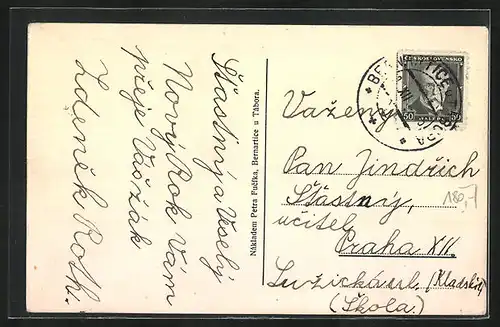 Šťastný a Veselý
Nový Rok Vám
přeje Váš žák
Zdeněk Roth.
Nákladem Petra Fučíka, Bernartice u Tábora.
ČESKOSLOVENSKO
50 50
Vážený
Pan Jindřich
Šťastný,
učitel
Praha XII.
Lužická ul. (Kladská)
(Škola.)
180,-